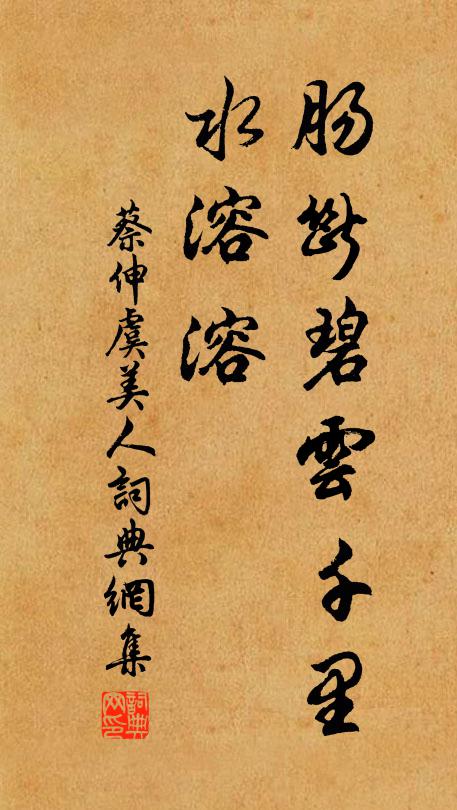 肠断碧雲千里
水溶溶
蔡伸虞美人詞典網集
詞典网印